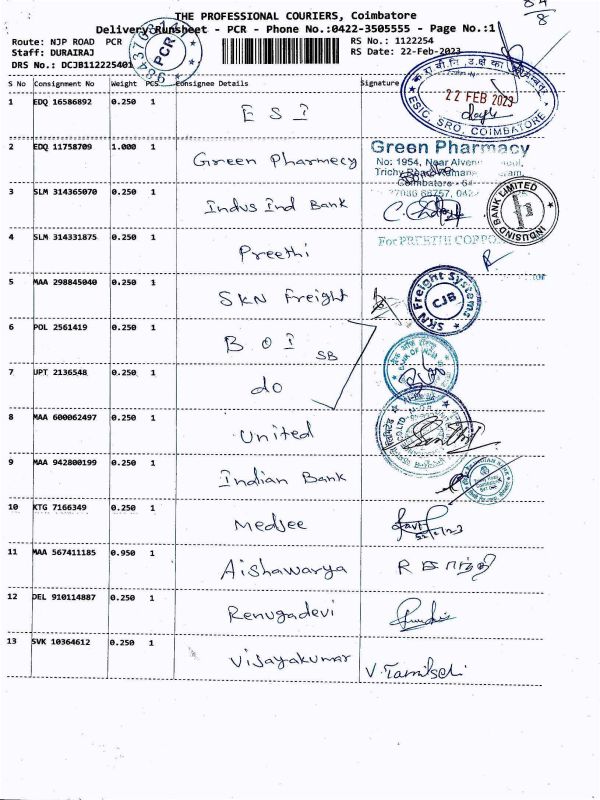 84
8
THE PROFESSIONAL COURIERS, Coimbatore
Delivery Runsheet - PCR - Phone No.:0422-3505555 - Page No.:1
Route: NJP ROAD PCR
RS No.: 1122254
Staff: DURAIRAJ
RS Date: 22-Feb-2023
DRS No.: DCJB112225401
PCR
S No Consignment No Weight PCS Consignee Details Signature
22 FEB 2023
ESIC, SRO, COIMBATORE
1 EDQ 16586892 0.250 1 E S I
2 EDQ 11758709 1.000 1 Green Pharmecy
Green Pharmacy
No: 1954, Near
Trichy
Coimbatore - 64
3 SLM 314365070 0.250 1 Indus Ind Bank
INDUSIND BANK LIMITED
4 SLM 314331875 0.250 1 Preethi
For PREETHI
5 MAA 298845040 0.250 1 SKN Freight
SKN Freight Systems
CJB
6 POL 2561419 0.250 1 B O I SB
BANK OF INDIA
7 UPT 2136548 0.250 1 do
8 MAA 600062497 0.250 1 United
9 MAA 942800199 0.250 1 Indian Bank
10 KTG 7166349 0.250 1 Medsee
11 MAA 567411185 0.950 1 Aishawarya
12 DEL 910114887 0.250 1 Renugadevi
13 SVK 10364612 0.250 1 Vijayakumar V. Tamilselvi